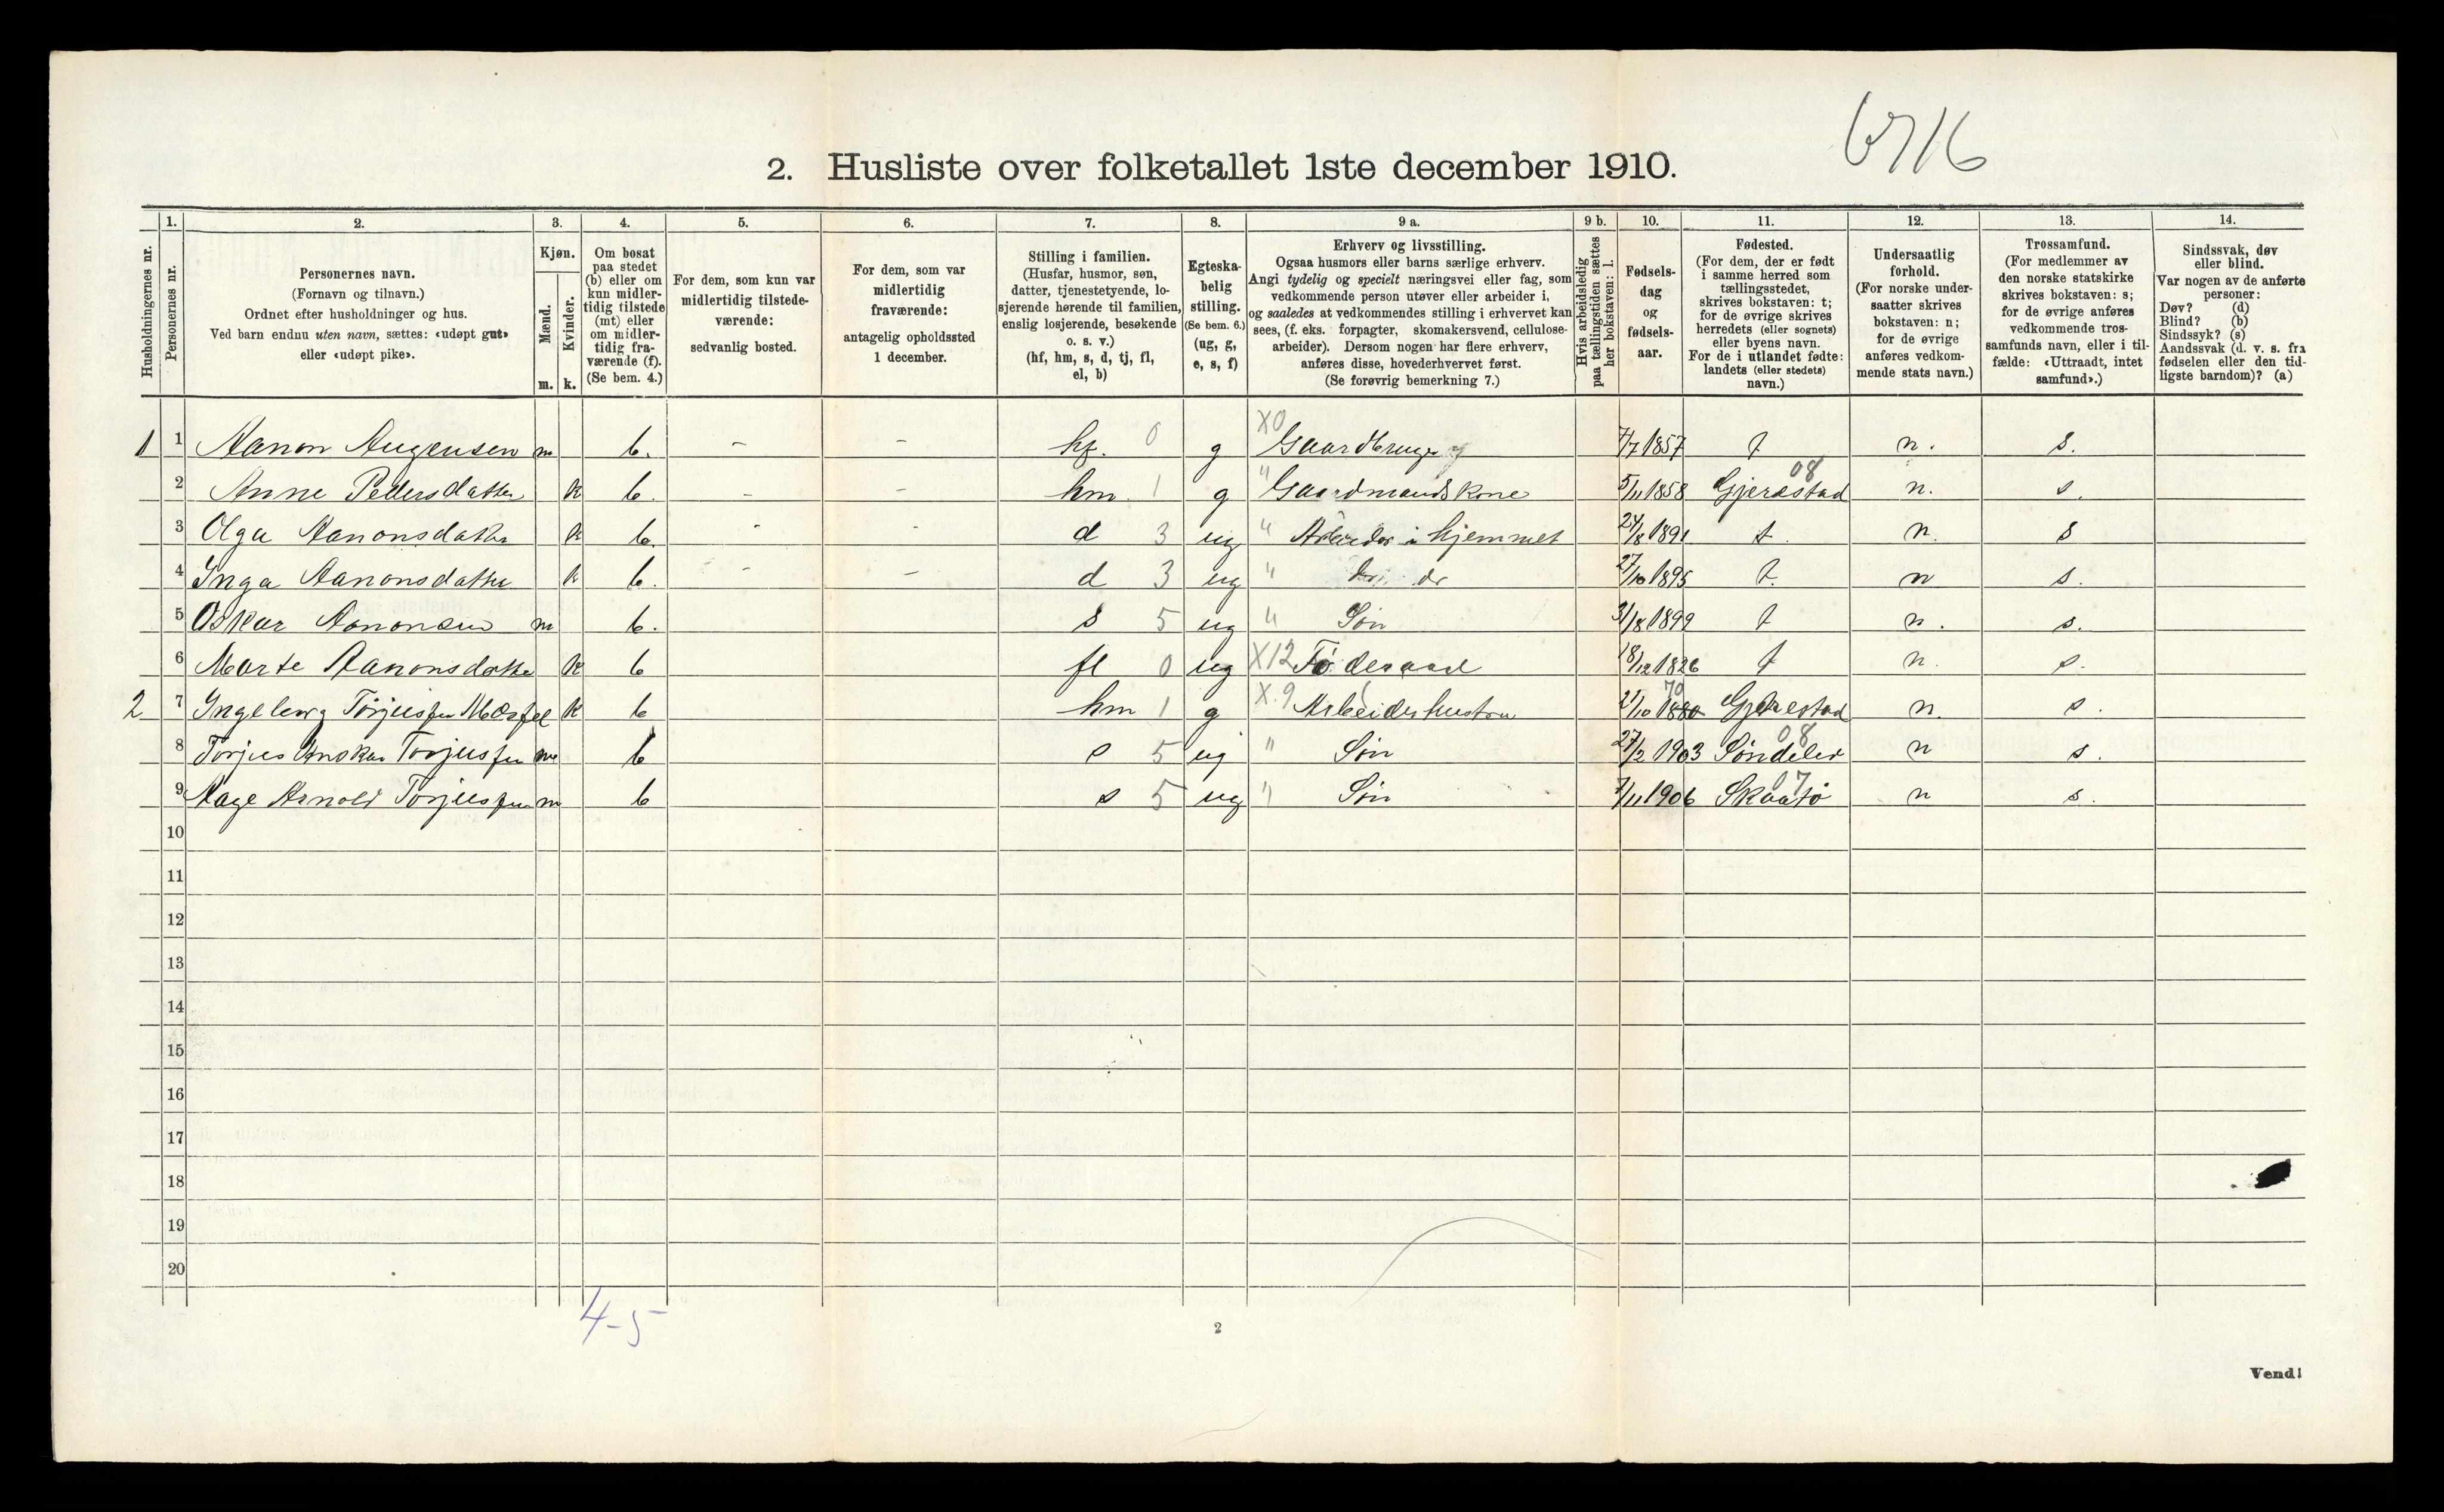 6716
2. Husliste over folketallet 1ste december 1910.
Husholdningernes nr.
1. Personernes nr.
2. Personernes navn. (Fornavn og tilnavn.) Ordnet efter husholdninger og hus. Ved barn endnu uten navn, sættes: «udøpt gut» eller «udøpt pike».
3. Kjøn. Mænd. m. Kvinder. k.
4. Om bosat paa stedet (b) eller om kun midlertidig tilstede (mt) eller om midlertidig fraværende (f). (Se bem. 4.)
5. For dem, som kun var midlertidig tilstedeværende: sedvanlig bosted.
6. For dem, som var midlertidig fraværende: antagelig opholdssted 1 december.
7. Stilling i familien. (Husfar, husmor, søn, datter, tjenestetyende, losjerende hørende til familien, enslig losjerende, besøkende o. s. v.) (hf, hm, s, d, tj, fl, el, b)
8. Egteskabelig stilling. (Se bem. 6.) (ug, g, e, s, f)
9 a. Erhverv og livsstilling. Ogsaa husmors eller barns særlige erhverv. Angi tydelig og specielt næringsvei eller fag, som vedkommende person utøver eller arbeider i, og saaledes at vedkommendes stilling i erhvervet kan sees, (f. eks. forpagter, skomakersvend, cellulosearbeider). Dersom nogen har flere erhverv, anføres disse, hovederhvervet først. (Se forøvrig bemerkning 7.)
9 b. Hvis arbeidsledig paa tællingstiden sættes her bokstaven: l.
10. Fødselsdag og fødselsaar.
11. Fødested. (For dem, der er født i samme herred som tællingsstedet, skrives bokstaven: t; for de øvrige skrives herredets (eller sognets) eller byens navn. For de i utlandet fødte: landets (eller stedets) navn.)
12. Undersaatlig forhold. (For norske undersaatter skrives bokstaven: n; for de øvrige anføres vedkommende stats navn.)
13. Trossamfund. (For medlemmer av den norske statskirke skrives bokstaven: s; for de øvrige anføres vedkommende trossamfunds navn, eller i tilfælde: «Uttraadt, intet samfund».)
14. Sindssvak, døv eller blind. Var nogen av de anførte personer: Døv? (d) Blind? (b) Sindssyk? (s) Aandssvak (d. v. s. fra fødselen eller den tidligste barndom)? (a)
1 1 Aanon Augensen m b. - - hf. 0 g X0 Gaardbruger 7/7 1857 t n. s.
2 Anne Pedersdatter k b. - - hm. 1 g " Gaardmandskone 5/11 1858 Gjerestad 08 n. s.
3 Olga Aanonsdatter k b. - - d 3 ug " Arbeider i hjemmet 24/8 1891 t. n. s
4 Inga Aanonsdatter k b. - - d 3 ug " do do 27/10 1895 t. n s.
5 Oskar Aanonsen m b. s 5 ug " Søn 31/8 1899 t n. s.
6 Marte Aanonsdatter k b fl 0 ug X12 Føderaad 18/12 1826 t n. s.
2 7 Ingeborg Torjussen k b hm 1 g X.9 Arbeiderhustru 21/10 1880 70 Gjerestad n. s.
8 Torjus Torjussen m b s 5 ug " Søn 27/2 1903 Søndelev 08 n s.
9 Aage Arnold Torjussen m b s 5 ug " Søn 7/11 1906 Skaatø 07 n s.
10
11
12
13
14
15
16
17
18
19
20
4-5
2
Vend!